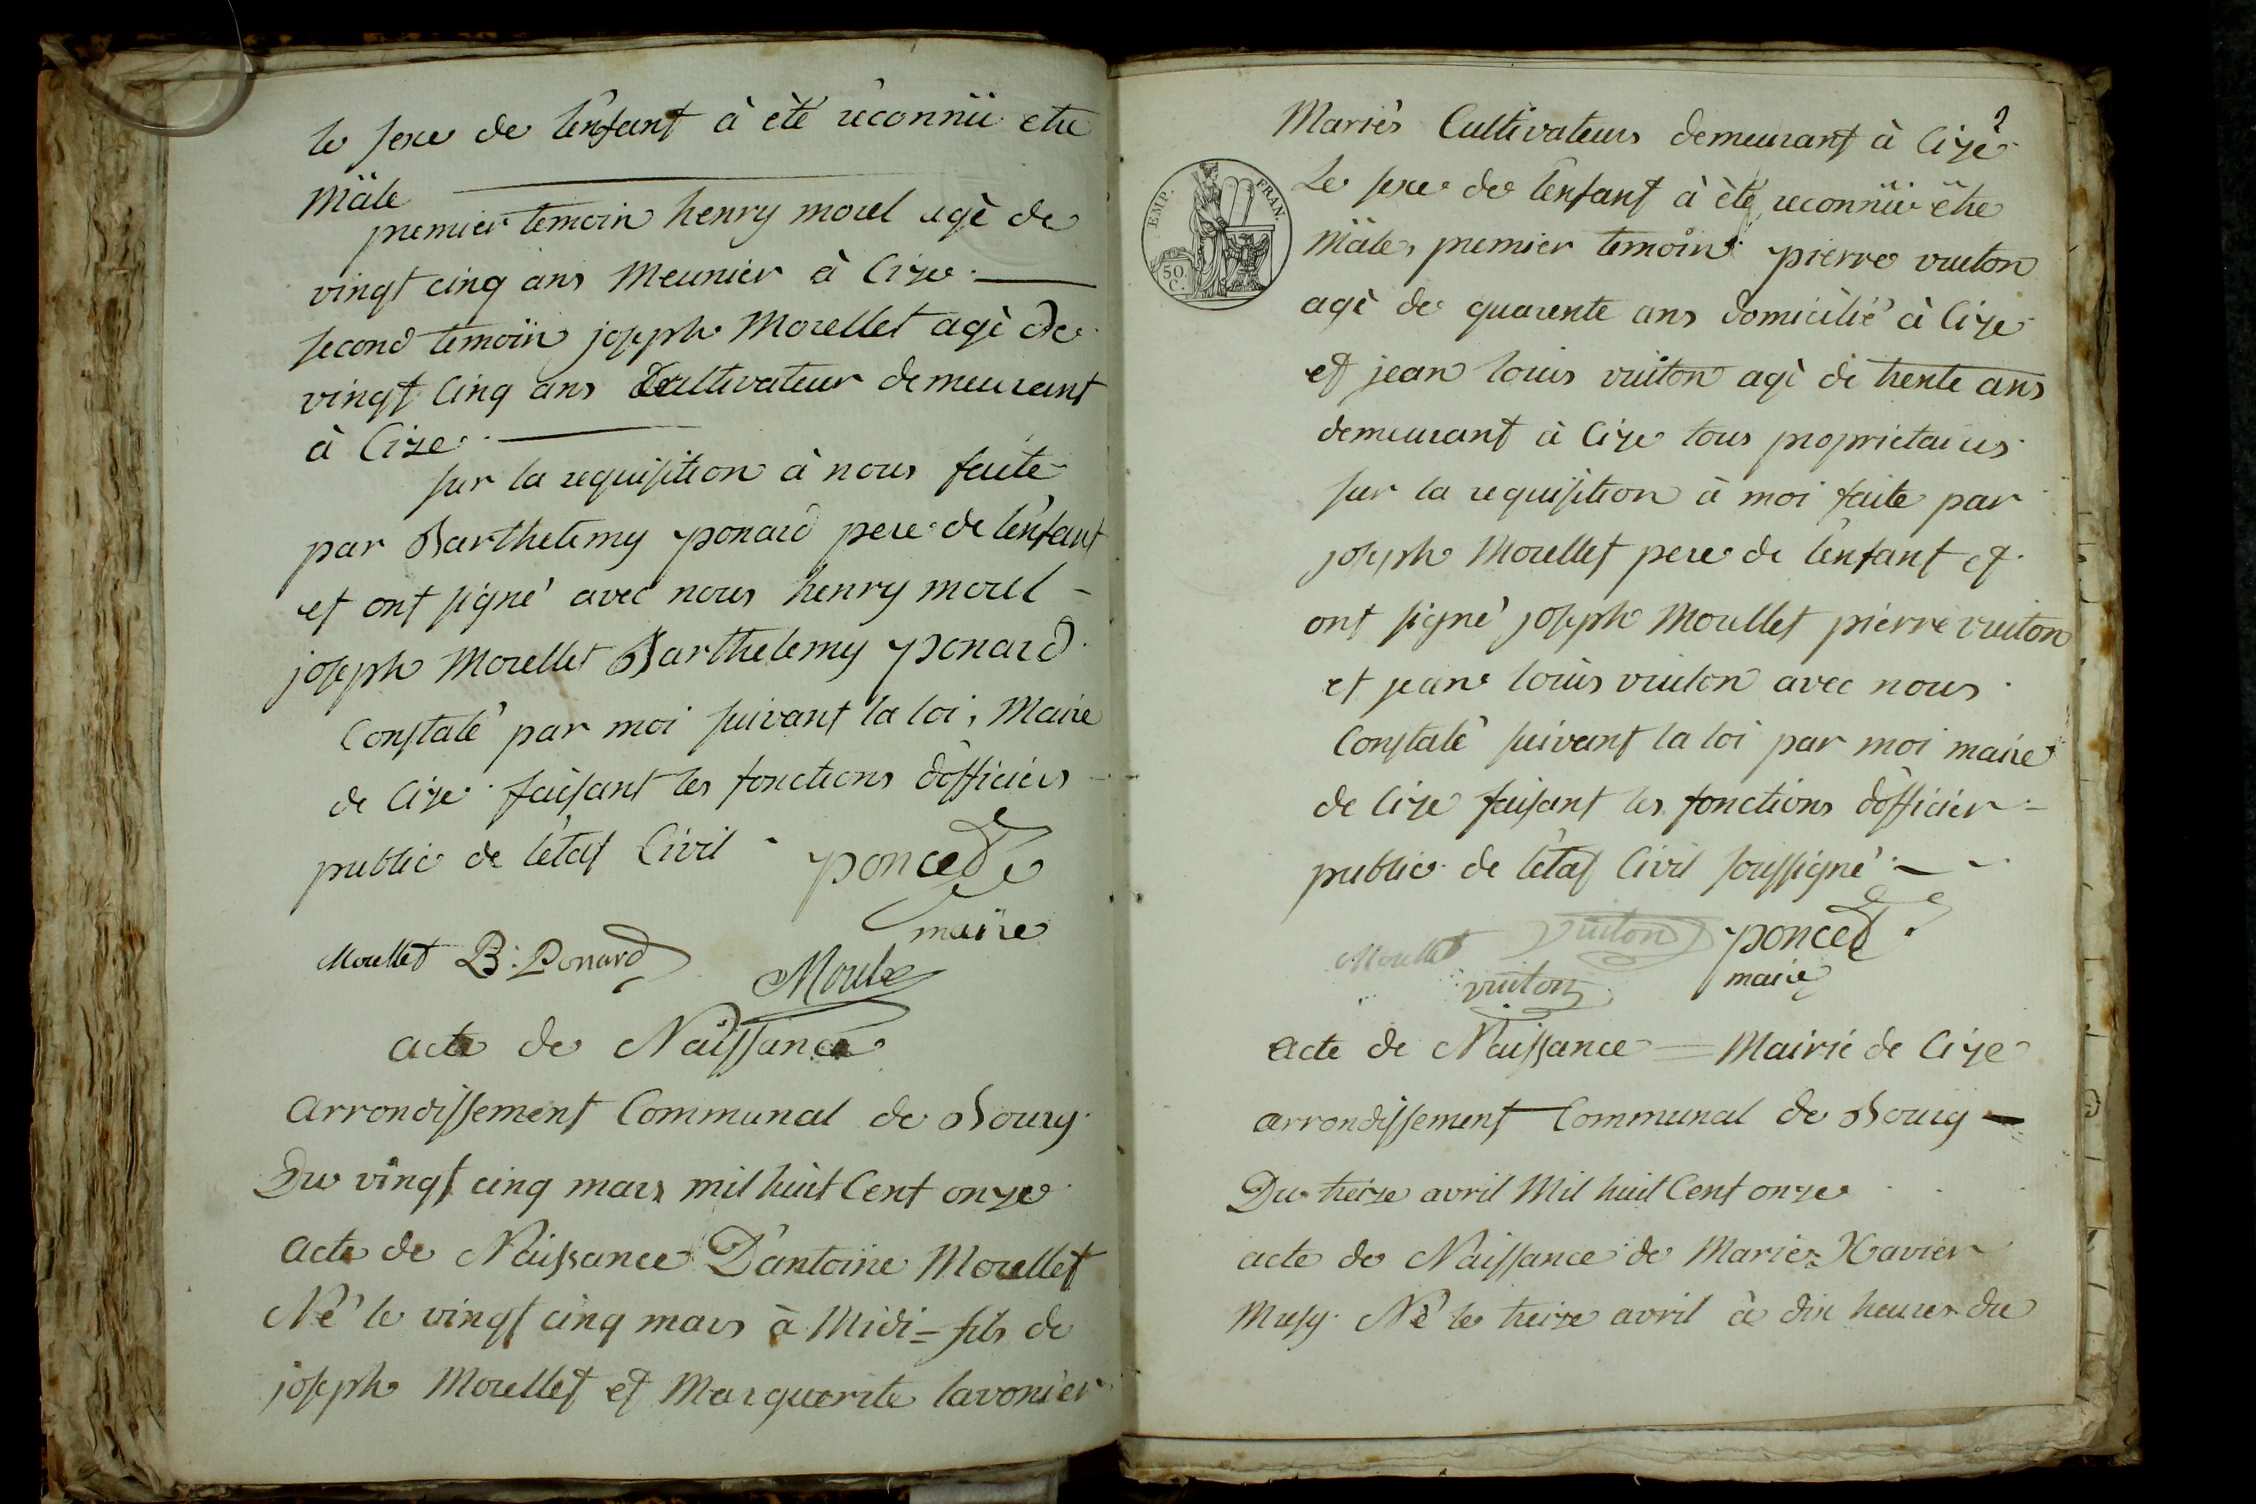 le sexe de l'enfant à èté reconnü etre
Mâle
premier temoin henry morel agè de
vingt cinq ans Meunier à Cize
second temoin joseph Morellet agè de
vingt Cinq ans Cultivateur demeurant
à Cize
sur la requisition à nous faite
par Barthelemy ponard pere de l'enfant
et ont signé avec nous henry morel
joseph Morellet Barthelemy ponard
Constaté par moi suivant la loi, Maire
de Cize faisant les fonctions d'officiers
public de l'état Civil
poncet
maire
Morellet B. Ponard
Morel
acte de Naissance
arrondissement Communal de Bourg
Du vingt cinq mars mil huit Cent onze
acte de Naissance D'antoine Morellet
Né le vingt cinq mars à Midi = fils de
joseph Morellet et Marguerite lavonier
2
Mariés Cultivateurs demeurant à Cize
TEMP. FRAN.
50.
C.
Le sexe de l'enfant à èté reconnü être
Mâle, premier temoin pierre vuiton
agè de quarente ans domicilié à Cize
et jean louis vuiton agè de trente ans
demeurant à Cize tous proprietaires
sur la requisition à moi faite par
joseph Morellet pere de l'enfant et
ont signé joseph Morellet pierre vuiton
et jean louis vuiton avec nous
Constaté suivant la loi par moi maire
de Cize faisant les fonctions d'officier =
public de l'état Civil soussigné
Morellet vuiton poncet
vuiton maire
acte de Naissance = Mairie de Cize
arrondissement Communal de Bourg
Du treize avril Mil huit Cent onze
acte de Naissance de Marie = Xavier
Musy Né le treize avril à dix heures du